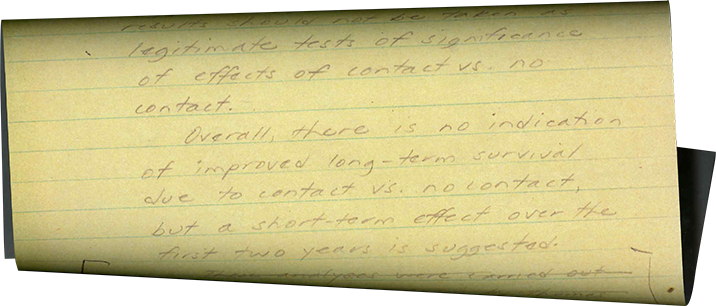 results should not be taken as
legitimate tests of significance
of effects of contact vs. no
contact.
Overall, there is no indication
of improved long-term survival
due to contact vs. no contact,
but a short-term effect over the
first two years is suggested.
analyses were carried out